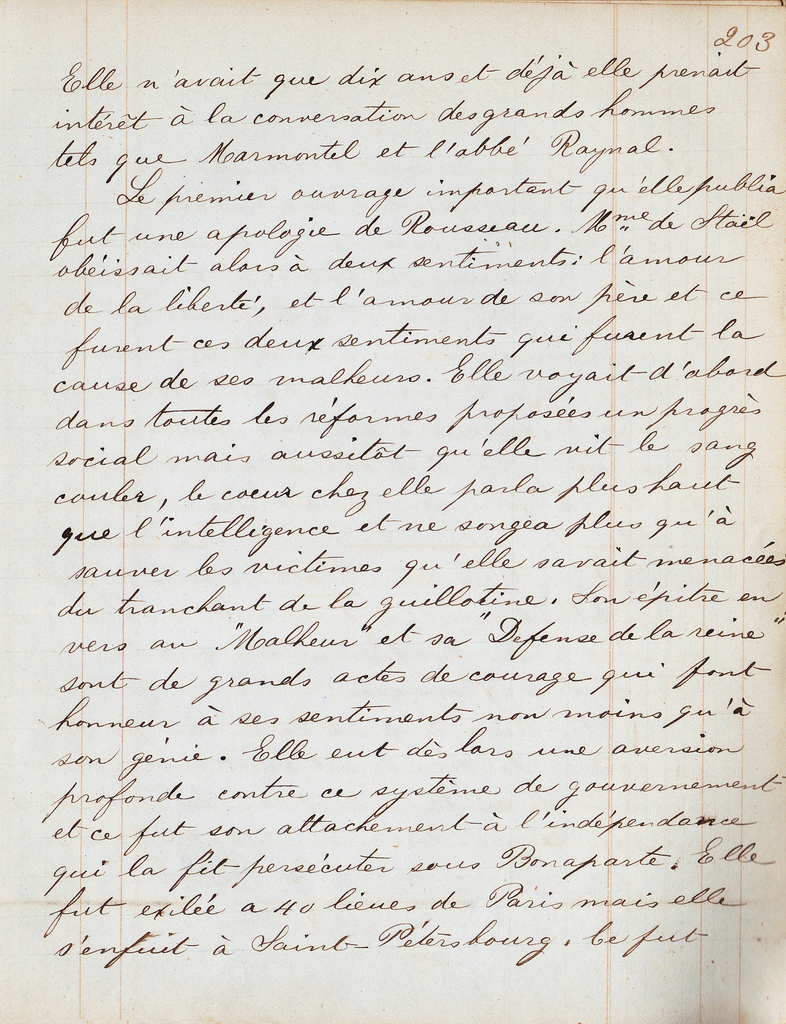 203
Elle n'avait que dix ans et déjà elle prenait
intérêt à la conversation des grands hommes
tels que Marmontel et l'abbé Raynal.
Le premier ouvrage important qu'elle publia
fut une apologie de Rousseau. Mme de Staël
obéissait alors à deux sentiments: l'amour
de la liberté, et l'amour de son père et ce
furent ces deux sentiments qui furent la
cause de ses malheurs. Elle voyait d'abord
dans toutes les réformes proposées un progrès
social mais aussitôt qu'elle vit le sang
couler, le coeur chez elle parla plus haut
que l'intelligence et ne songea plus qu'à
sauver les victimes qu'elle savait menacées
du tranchant de la guillotine. Son épitre en
vers au "Malheur" et sa "Defense de la reine"
sont de grands actes de courage qui font
honneur à ses sentiments non moins qu'à
son génie. Elle eut dès lors une aversion
profonde contre ce système de gouvernement
et ce fut son attachement à l'indépendance
qui la fit persécuter sous Bonaparte. Elle
fut exilée a 40 lieues de Paris mais elle
s'enfuit à Saint-Pétersbourg. Ce fut